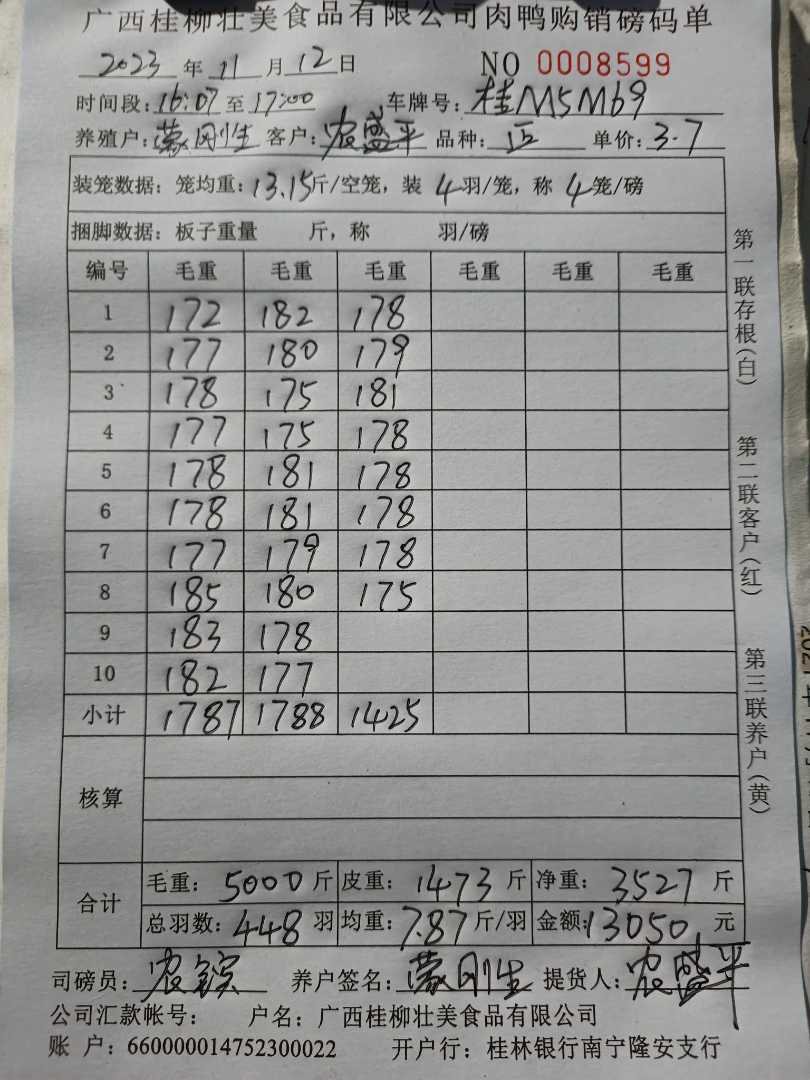 广西桂柳壮美食品有限公司肉鸭购销磅码单
2023年11月12日 NO 0008599
时间段:16:07至17:00 车牌号:桂M5M69
养殖户:蒙刚生 客户:农盛平 品种: 单价:3.7
装笼数据: 笼均重:13.15斤/空笼, 装4羽/笼, 称4笼/磅
捆脚数据: 板子重量 斤, 称 羽/磅
编号 毛重 毛重 毛重 毛重 毛重 毛重
1 172 182 178
2 177 180 179
3 178 175 181
4 177 175 178
5 178 181 178
6 178 181 178
7 177 179 178
8 185 180 175
9 183 178
10 182 177
小计 1787 1788 1425
核算
合计 毛重: 5000斤 皮重: 1473斤 净重: 3527斤
总羽数: 448羽 均重: 7.87斤/羽 金额: 13050元
司磅员: 农 养户签名: 蒙刚生 提货人: 农盛平
公司汇款帐号: 户名: 广西桂柳壮美食品有限公司
账 户: 660000014752300022 开户行: 桂林银行南宁隆安支行
第一联存根(白)
第二联客户(红)
第三联养户(黄)